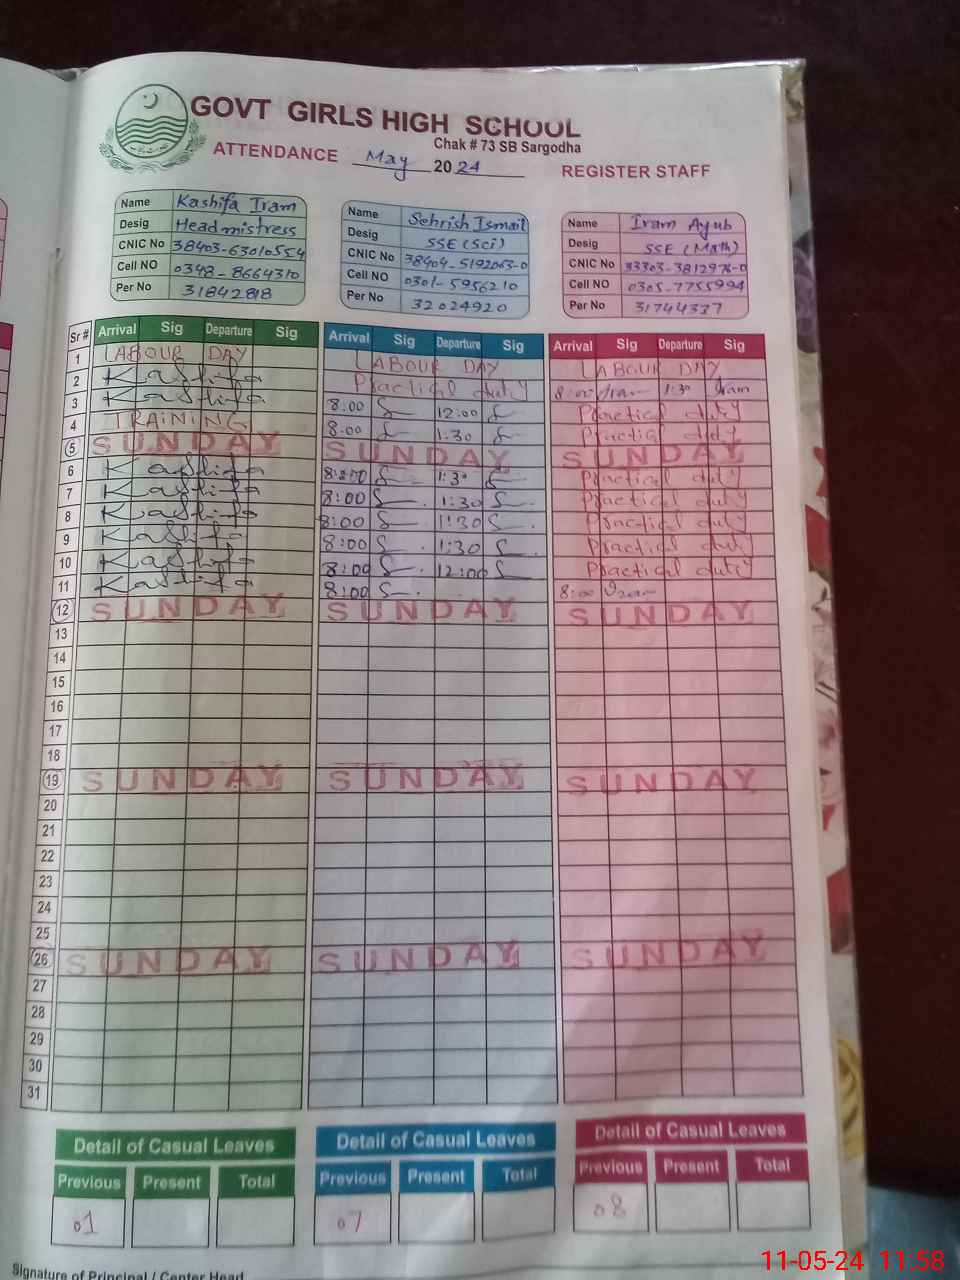 GOVT GIRLS HIGH SCHOOL
Chak # 73 SB Sargodha
ATTENDANCE May 2024 REGISTER STAFF
Name Kashifa Iram
Desig Headmistress
CNIC No 38403-63010554
Cell NO 0348-8664310
Per No 31842818
Name Sehrish Ismail
Desig SSE (Sci)
CNIC No 38404-5192063-0
Cell NO 0301-5956210
Per No 32024920
Name Iram Ayub
Desig SSE (Math)
CNIC No 33303-3812976-0
Cell NO 0305-7755994
Per No 31744337
Sr # Arrival Sig Departure Sig Arrival Sig Departure Sig Arrival Sig Departure Sig
1 LABOUR DAY LABOUR DAY LABOUR DAY
2 Kashifa Practical duty 8:00 Iram 1:30 Iram
3 Kashifa 8:00 S 12:00 S Practical duty
4 TRAINING 8:00 S 1:30 S Practical duty
5 SUNDAY SUNDAY SUNDAY
6 Kashifa 8:00 S 1:30 S Practical duty
7 Kashifa 8:00 S 1:30 S Practical duty
8 Kashifa 8:00 S 1:30 S Practical duty
9 Kashifa 8:00 S 1:30 S Practical duty
10 Kashifa 8:00 S 12:00 S Practical duty
11 Kashifa 8:00 S 8:00 Iram
12 SUNDAY SUNDAY SUNDAY
13
14
15
16
17
18
19 SUNDAY SUNDAY SUNDAY
20
21
22
23
24
25
26 SUNDAY SUNDAY SUNDAY
27
28
29
30
31
Detail of Casual Leaves Detail of Casual Leaves Detail of Casual Leaves
Previous Present Total Previous Present Total Previous Present Total
01 07 08
Signature of Principal / Center Head
11-05-24 11:58